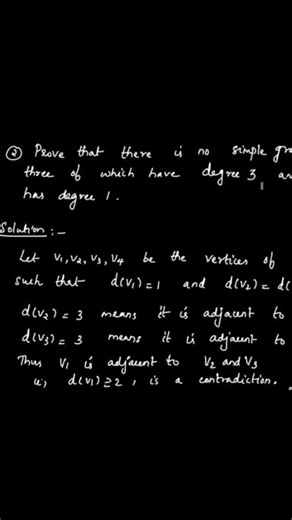 ② Prove that there is no simple gra
three of which have degree 3, an
has degree 1.
Solution :-
Let V1, V2, V3, V4 be the vertices of
such that d(V1) = 1 and d(V2) = d(
d(V2) = 3 means it is adjacent to
d(V3) = 3 means it is adjacent to
Thus V1 is adjacent to V2 and V3
ie, d(V1) ≥ 2, is a contradiction.